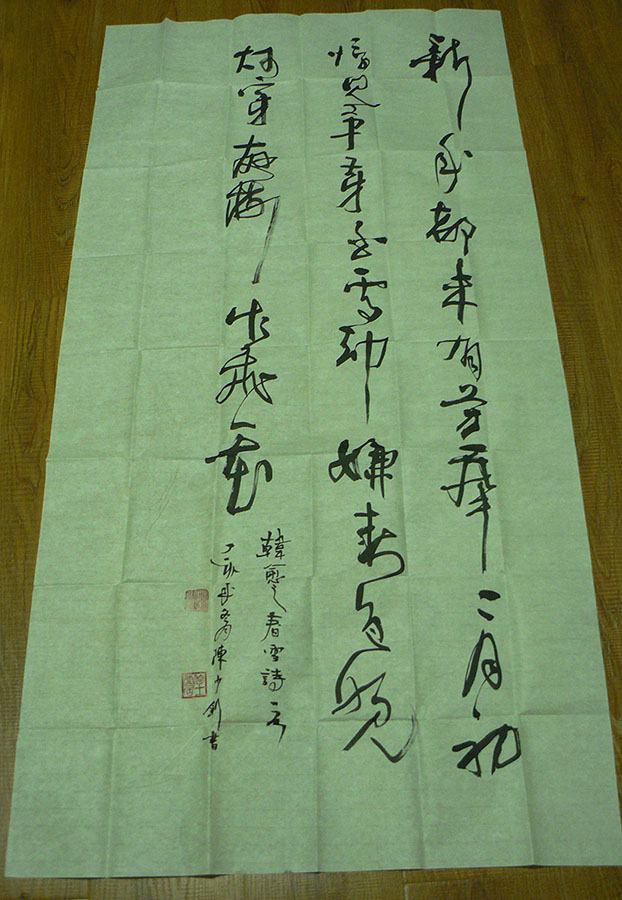 新年都未有芳華二月初
惊見草芽白雪却嫌春色晚
故穿庭樹作飛花
韓愈之春雪詩
丁亥陳少剑書